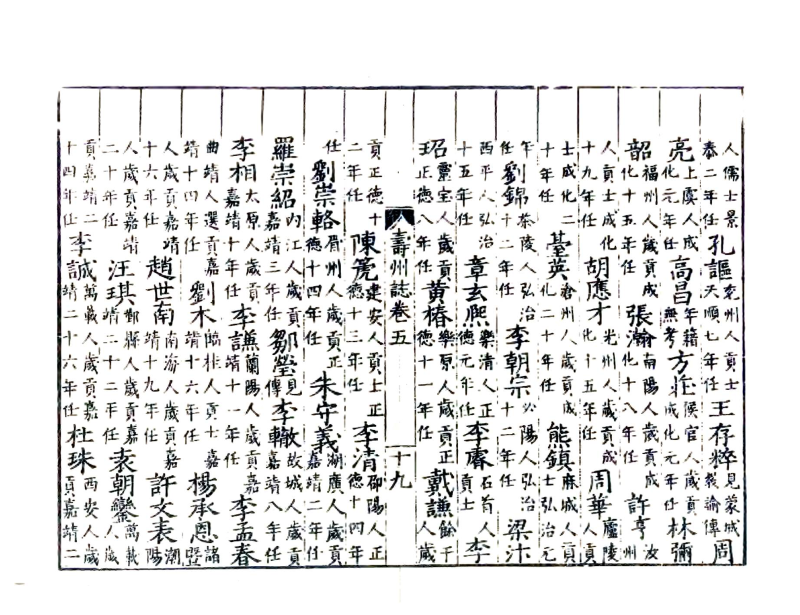 人儒士景泰二年任孔謳兗州人貢士天順七年任王存粹見蒙城教諭傳周
亮上虞人成化元年任高昌年籍無考方壯候官人歲貢成化元年任林彌
韶福州人歲貢成化十五年任張瀚南陽人歲貢成化十八年任許亨汝州
人貢士成化十九年任胡應才光州人歲貢成化十五年任周華廬陵人貢
士成化二十年任䑓英滄州人歲貢成化二十年任熊鎮麻城人貢士弘治元
年任劉錦茶陵人弘治十二年任李朝宗沁陽人弘治十二年任梁汴
西平人弘治十五年任章玄熙樂清人正德元年任李睿石首人貢士李
玿靈宝人歲貢正德八年任黄椿樂原人歲貢正德十一年任戴謙餘干人歲
壽州誌卷五
十九
貢正德十二年任陳筦建安人貢士正德十三年任李清仰陽人正德十四年
任劉崇輅眉州人歲貢正德十四年任朱守義湖廣人歲貢嘉靖二年任
羅崇紹內江人歲貢嘉靖三年任鄒瑩見傳李轍故城人歲貢嘉靖八年任
李相太原人歲貢嘉靖十年任李謙蘭陽人歲貢嘉靖十一年任李孟春
曲靖人選貢嘉靖十四年任劉木臨桂人貢士嘉靖十六年任楊承恩諸暨
人歲貢嘉靖十六年任趙世南南海人歲貢嘉靖十九年任許文表潮陽
人歲貢嘉靖二十年任汪琪鄞縣人歲貢嘉靖二十二年任袁朝鑾萬載人歲
貢嘉靖二十四年任李誠萬載人歲貢嘉靖二十六年任杜珠西安人歲貢嘉靖二